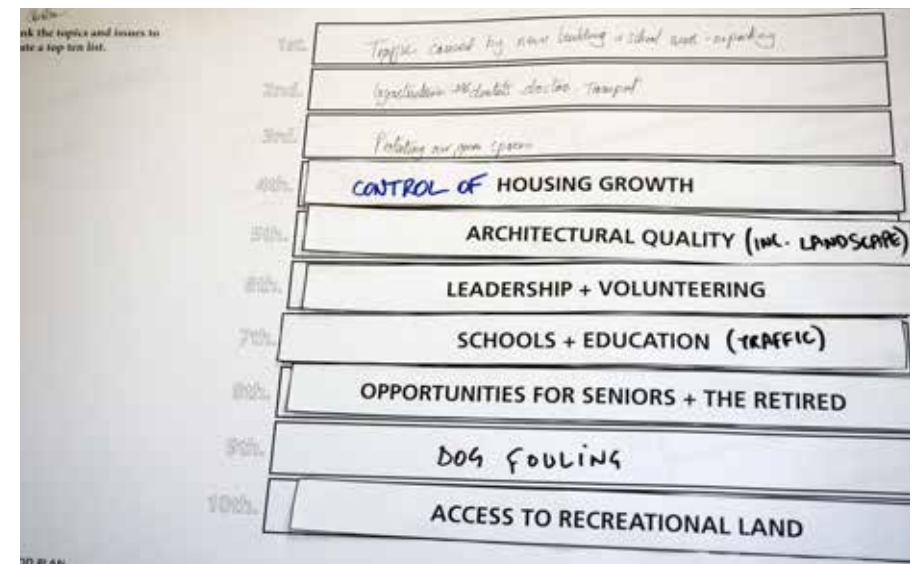 nk the topics and issues to
ate a top ten list.
1st.
Traffic caused by new building + school
2nd.
Transport
3rd.
Protecting our green spaces
4th.
CONTROL OF HOUSING GROWTH
5th.
ARCHITECTURAL QUALITY (INC. LANDSCAPE)
6th.
LEADERSHIP + VOLUNTEERING
7th.
SCHOOLS + EDUCATION (TRAFFIC)
8th.
OPPORTUNITIES FOR SENIORS + THE RETIRED
9th.
DOG FOULING
10th.
ACCESS TO RECREATIONAL LAND